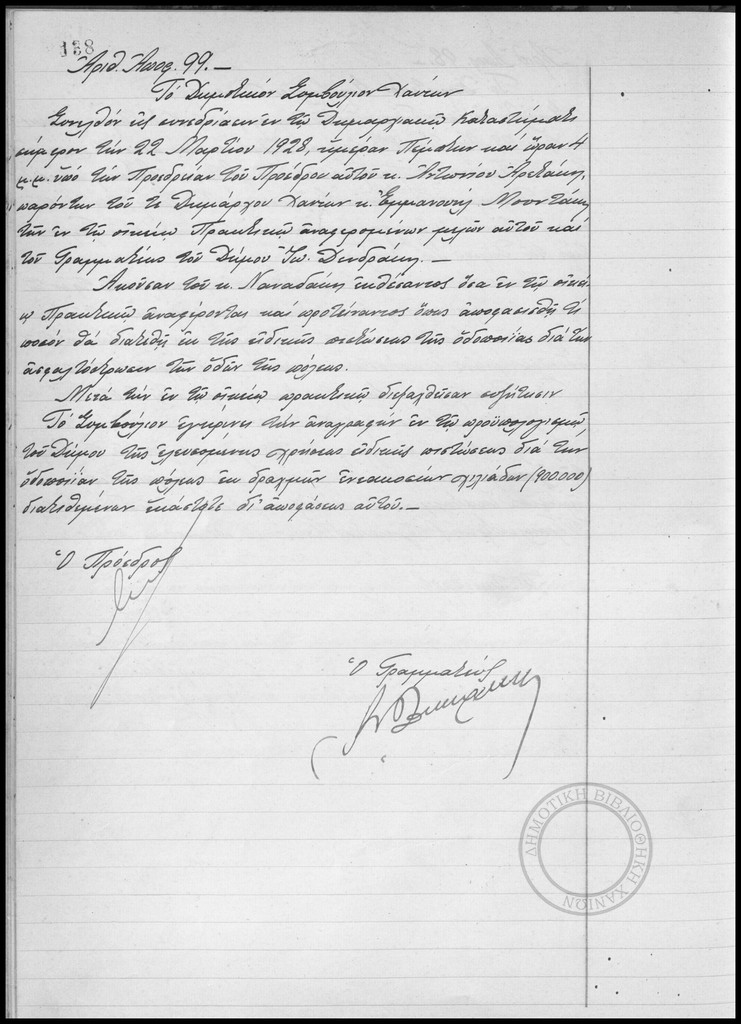 138
Ἀριθ. Ἀποφ. 99.—
Τό Δημοτικόν Συμβούλιον Χανίων
Συνελθόν εἰς συνεδρίασιν ἐν τῷ Δημαρχιακῷ Καταστήματι
σήμερον τήν 22 Μαρτίου 1928, ἡμέραν Πέμπτην καί ὥραν 4
μ.μ. ὑπό τήν Προεδρείαν τοῦ Προέδρου αὐτοῦ κ. Ἀντωνίου
παρόντων τοῦ τε Δημάρχου Χανίων κ. Ἐμμανουήλ Μουντάκη
τῶν ἐν τῷ οἰκείῳ Πρακτικῷ ἀναφερομένων μελῶν αὐτοῦ καί
τοῦ Γραμματέως τοῦ Δήμου Ἰω. Δενδράκη.—
Ἀκοῦσαν τοῦ κ. Ναναδάκη ἐκθέσαντος ὅσα ἐν τῷ οἰκεί
ῳ Πρακτικῷ ἀναφέρονται καί προτείναντος ὅπως ἀποφασισθῇ τί
ποσόν θά διατεθῇ ἐκ τῆς εἰδικῆς πιστώσεως τῆς ὁδοποιΐας διά τήν
ἀσφαλτόστρωσιν τῶν ὁδῶν τῆς πόλεως.
Μετά τήν ἐν τῷ οἰκείῳ πρακτικῷ διεξαχθεῖσαν συζήτησιν
Τό Συμβούλιον ἐγκρίνει τήν ἀναγραφήν ἐν τῷ προϋπολογισμῷ
τοῦ Δήμου τῆς ἐλευσομένης χρήσεως εἰδικῆς πιστώσεως διά τήν
ὁδοποιΐαν τῆς πόλεως ἐκ δραχμῶν ἐνεακοσίων χιλιάδων (900.000)
διατιθεμένων ἑκάστοτε δι' ἀποφάσεως αὐτοῦ.—
Ὁ Πρόεδρος
Ὁ Γραμματεύς
ΔΗΜΟΤΙΚΗ ΒΙΒΛΙΟΘΗΚΗ ΧΑΝΙΩΝ